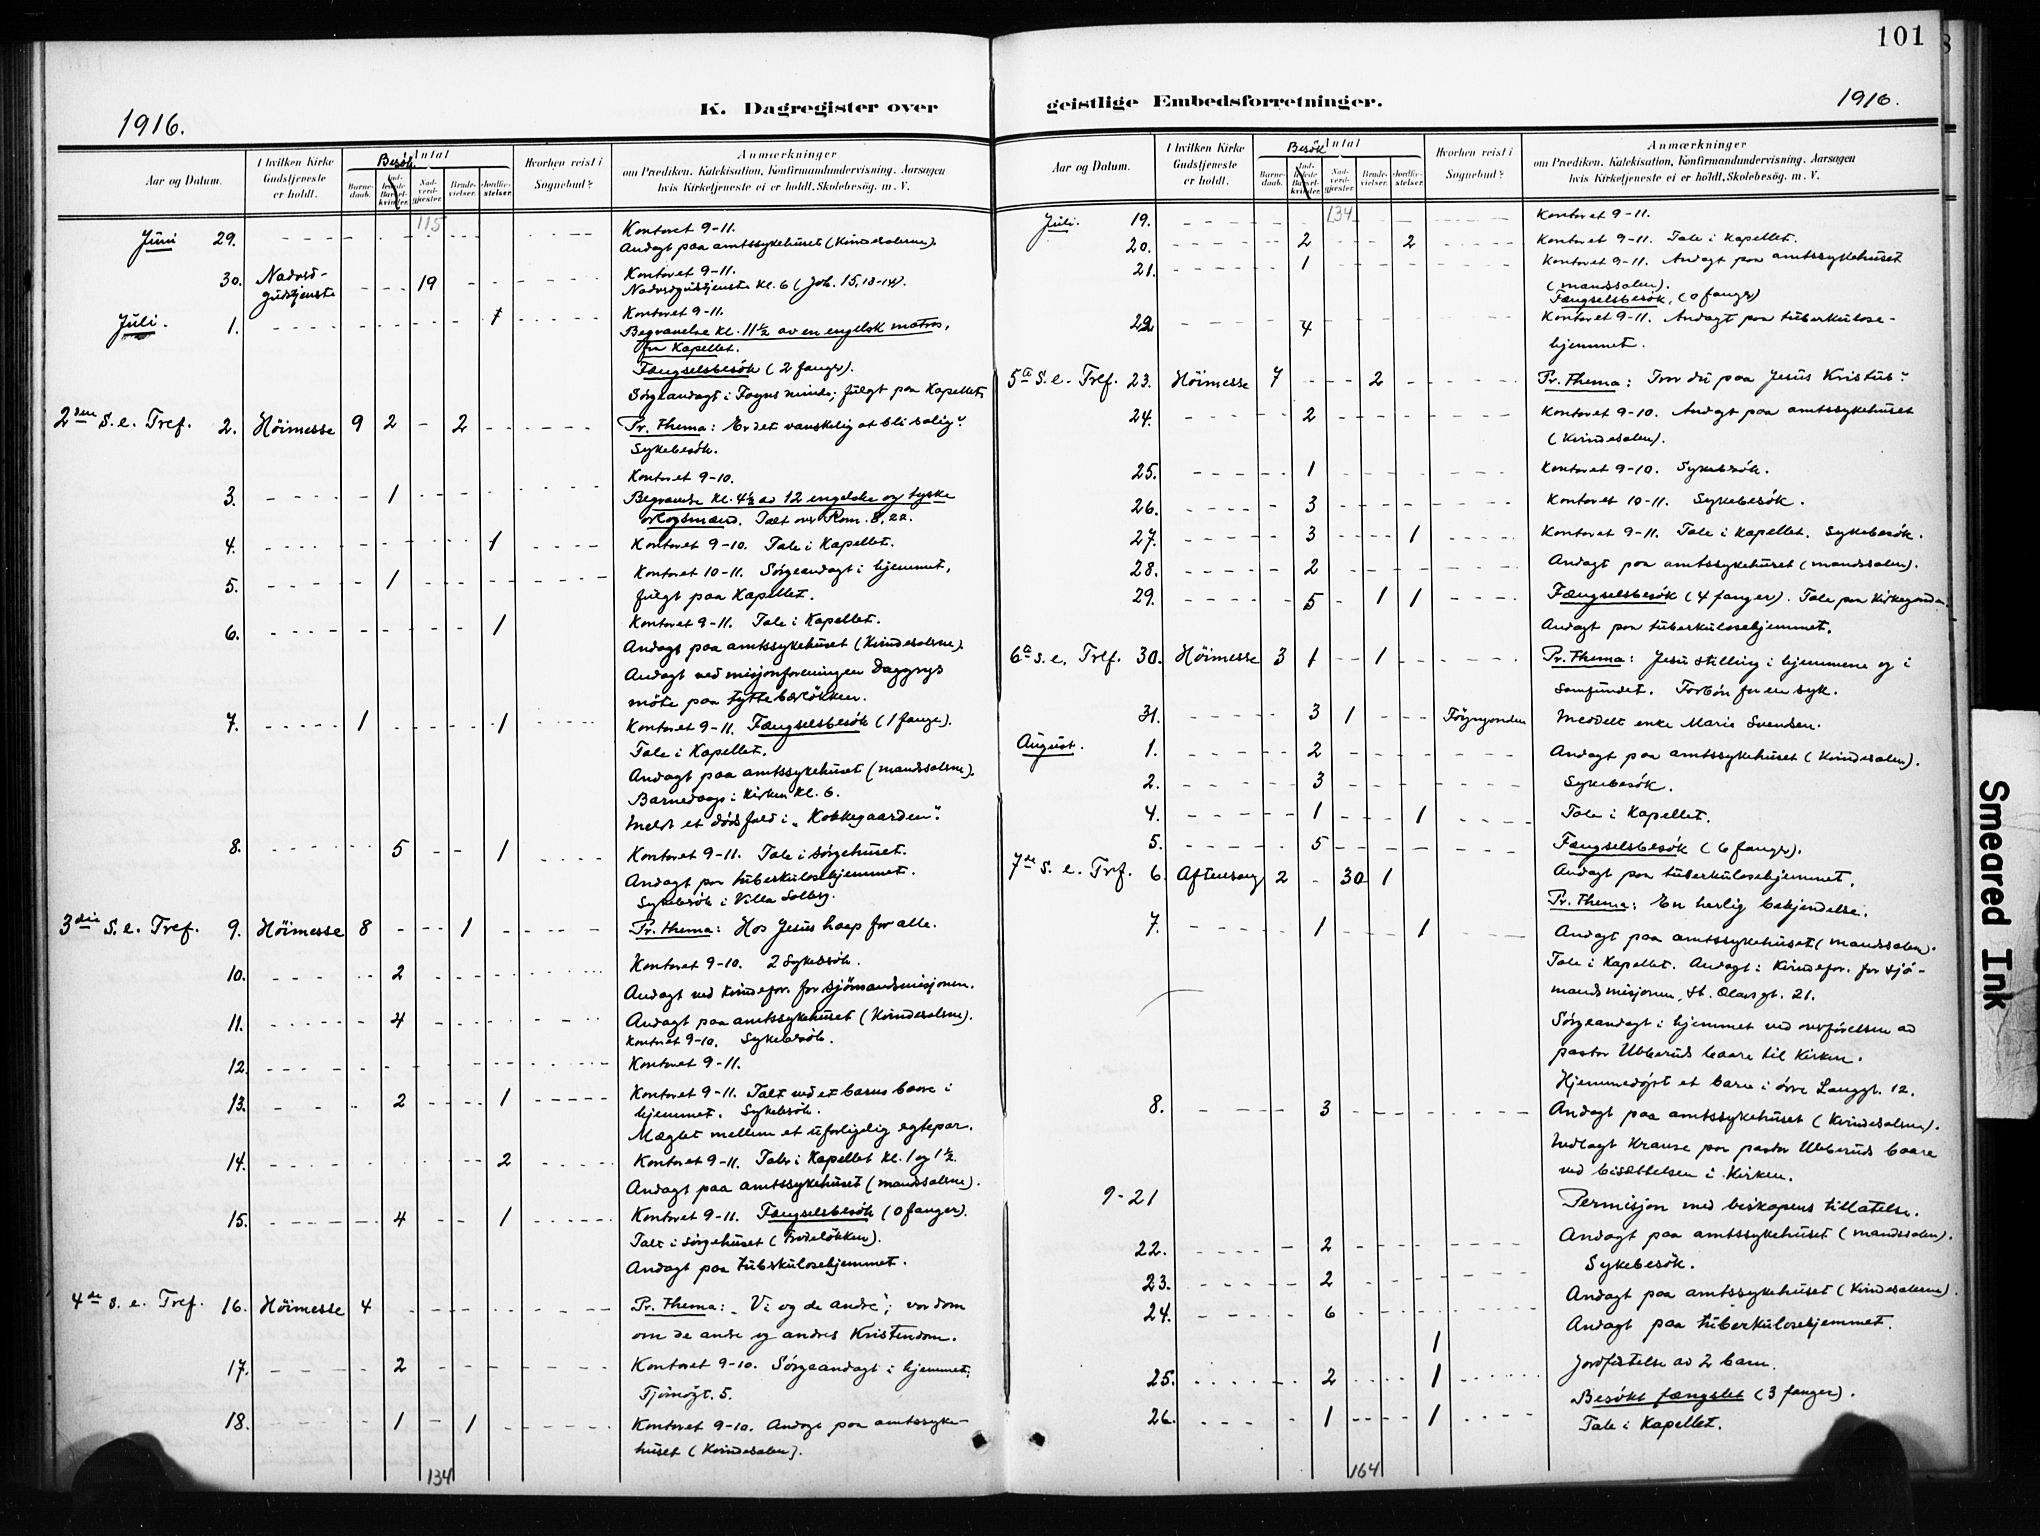 101
1916.
K. Dagregister over
geistlige Embedsforretninger.
1916.
Aar og Datum.
I hvilken Kirke
Gudstjeneste
er holdt.
Antal
Besök
Barne-
daab.
Ind-
ledede
Barsel-
kvinder.
Nad-
verd-
gjester.
Brude-
vielser.
Jordfæ-
stelser.
Hvorhen reist i
Sognebud?
Anmærkninger
om Prædiken, Katekisation, Konfirmandundervisning. Aarsagen
hvis Kirketjeneste ei er holdt, Skolebesøg. m. V.
115
Juni 29. Kontoret 9-11.
Andagt paa amtssykehuset (Kvindesalerne).
30. Nadverd- 19 Kontoret 9-11.
gudstjeneste Nadverdgudstjeneste kl. 6 (Joh. 15, 13-14).
Juli. 1. 1 Kontoret 9-11.
Begravelse kl. 11½ av en engelsk matros,
fra Kapellet.
Fængselsbesök (2 fanger).
Sörgeandagt i Foyns minde; fulgt paa Kapellet.
2den S. e. Tref. 2. Höimesse 9 2 - 2 Pr. thema: Er det vanskelig at bli salig?
Sykebesök.
3. 1 Kontoret 9-10.
Begravelse kl. 4½ av 12 engelske og tyske
orlogsmænd. Talt over Rom. 8, 22.
4. 1 Kontoret 9-10. Tale i Kapellet.
5. 1 Kontoret 10-11. Sörgeandagt i hjemmet,
fulgt paa Kapellet.
6. 1 Kontoret 9-11. Tale i Kapellet.
Andagt paa amtssykehuset (Kvindesalerne).
Andagt ved misjonforeningen Daggrys
möte paa Tyttebærlökken.
7. 1 1 Kontoret 9-11. Fængselsbesök (1 fange).
Tale i Kapellet.
Andagt paa amtssykehuset (mandssalerne).
Barnedaap i Kirken kl. 6.
Meldt et dödsfald i "Kokkegaarden".
8. 5 1 Kontoret 9-11. Tale i sörgehuset.
Andagt paa tuberkulosehjemmet.
Sykebesök i Villa Solberg.
3die S. e. Tref. 9. Höimesse 8 1 Pr. thema: Hos Jesus haap for alle.
10. 2 Kontoret 9-10. 2 Sykebesök.
Andagt ved Kvindefor. for sjömandsmisjonen.
11. 4 Andagt paa amtssykehuset (Kvindesalerne).
Kontoret 9-10. Sykebesök.
12. Kontoret 9-11.
13. 2 1 Kontoret 9-11. Talt ved et barns baare i
hjemmet. Sykebesök.
Mæglet mellem et uforligelig egtepar.
14. 2 Kontoret 9-11. Taler i Kapellet kl. 1 og 1½.
Andagt paa amtssykehuset (mandssalerne).
15. 4 1 Kontoret 9-11. Fængselsbesök (0 fanger).
Talt i Sörgehuset (Trodelökken).
Andagt paa tuberkulosehjemmet.
4de S. e. Tref. 16. Höimesse 4 Pr. thema: "Vi og de andre"; vor dom
om de andre og andres Kristendom.
17. 2 Kontoret 9-10. Sörgeandagt i hjemmet,
Tjömögt. 5.
18. 1 - 1 Kontoret 9-10. Andagt paa amtssyke-
huset (Kvindesalen).
134
Aar og Datum.
I hvilken Kirke
Gudstjeneste
er holdt.
Antal
Besök
Barne-
daab.
Ind-
ledede
Barsel-
kvinder.
Nad-
verd-
gjester.
Brude-
vielser.
Jordfæ-
stelser.
Hvorhen reist i
Sognebud?
Anmærkninger
om Prædiken, Katekisation, Konfirmandundervisning. Aarsagen
hvis Kirketjeneste ei er holdt, Skolebesøg. m. V.
134
Juli. 19. Kontoret 9-11.
20. 2 2 Kontoret 9-11. Tale i Kapellet.
21. 1 Kontoret 9-11. Andagt paa amtssykehuset
(mandssalen).
Fængselsbesök, (0 fanger)
22 4 Kontoret 9-11. Andagt paa tuberkulose-
hjemmet.
5te S. e. Tref. 23. Höimesse 7 2 Pr. thema: Tror du paa Jesus Kristus?
24. 2 Kontoret 9-10. Andagt paa amtssykehuset
(Kvindesalen).
25. 1 Kontoret 9-10. Sykebesök.
26. 3 Kontoret 10-11. Sykebesök.
27. 3 1 Kontoret 9-11. Tale i Kapellet. Sykebesök.
28. 2 Andagt paa amtssykehuset (mandssalen).
29. 5 1 1 Fængselsbesök (4 fanger). Tale paa Kirkegaarden.
Andagt paa tuberkulosehjemmet.
6te S. e. Tref. 30. Höimesse 3 1 1 Pr. thema: Jesu stilling i hjemmene og i
Samfundet. Forbön for en syk.
31. 3 1 Föyngaarden Meddelt enke Marie Svendsen.
August. 1. 2 Andagt paa amtssykehuset (Kvindesalen).
2. 3 Sykebesök.
4. 1 1 Tale i Kapellet.
5. 5 Fængselsbesök (6 fanger).
7de S. e. Tref. 6. Aftensang 2 - 30 1 Andagt paa tuberkulosehjemmet.
Pr. thema: En herlig bekjendelse.
7. 1 1 Andagt paa amtssykehuset (mandssalen).
Tale i Kapellet. Andagt i Kvindefor. for sjö-
mandsmisjonen, St. Olavsgt. 21.
Sörgeandagt i hjemmet ved overförelsen av
pastor Ubberuds baare til Kirken.
Hjemmedöpt et barn i övre Langgt. 12.
8. 3 Andagt paa amtssykehuset (Kvindesalerne).
Nedlagt Kranse paa pastor Ubberuds baare
ved bisættelsen i Kirken.
9-21 Permisjon med biskopens tillatelse.
22. 2 Andagt paa amtssykehuset (mandssalen).
Sykebesök.
23. 2 Andagt paa amtssykehuset (Kvindesalerne).
24. 6 Andagt paa tuberkulosehjemmet.
1 Jordfæstelse av 2 barn.
25. 2 1 Besökt fængslet (3 fanger).
26. 1 1 Tale i Kapellet.
164
Smeared Ink